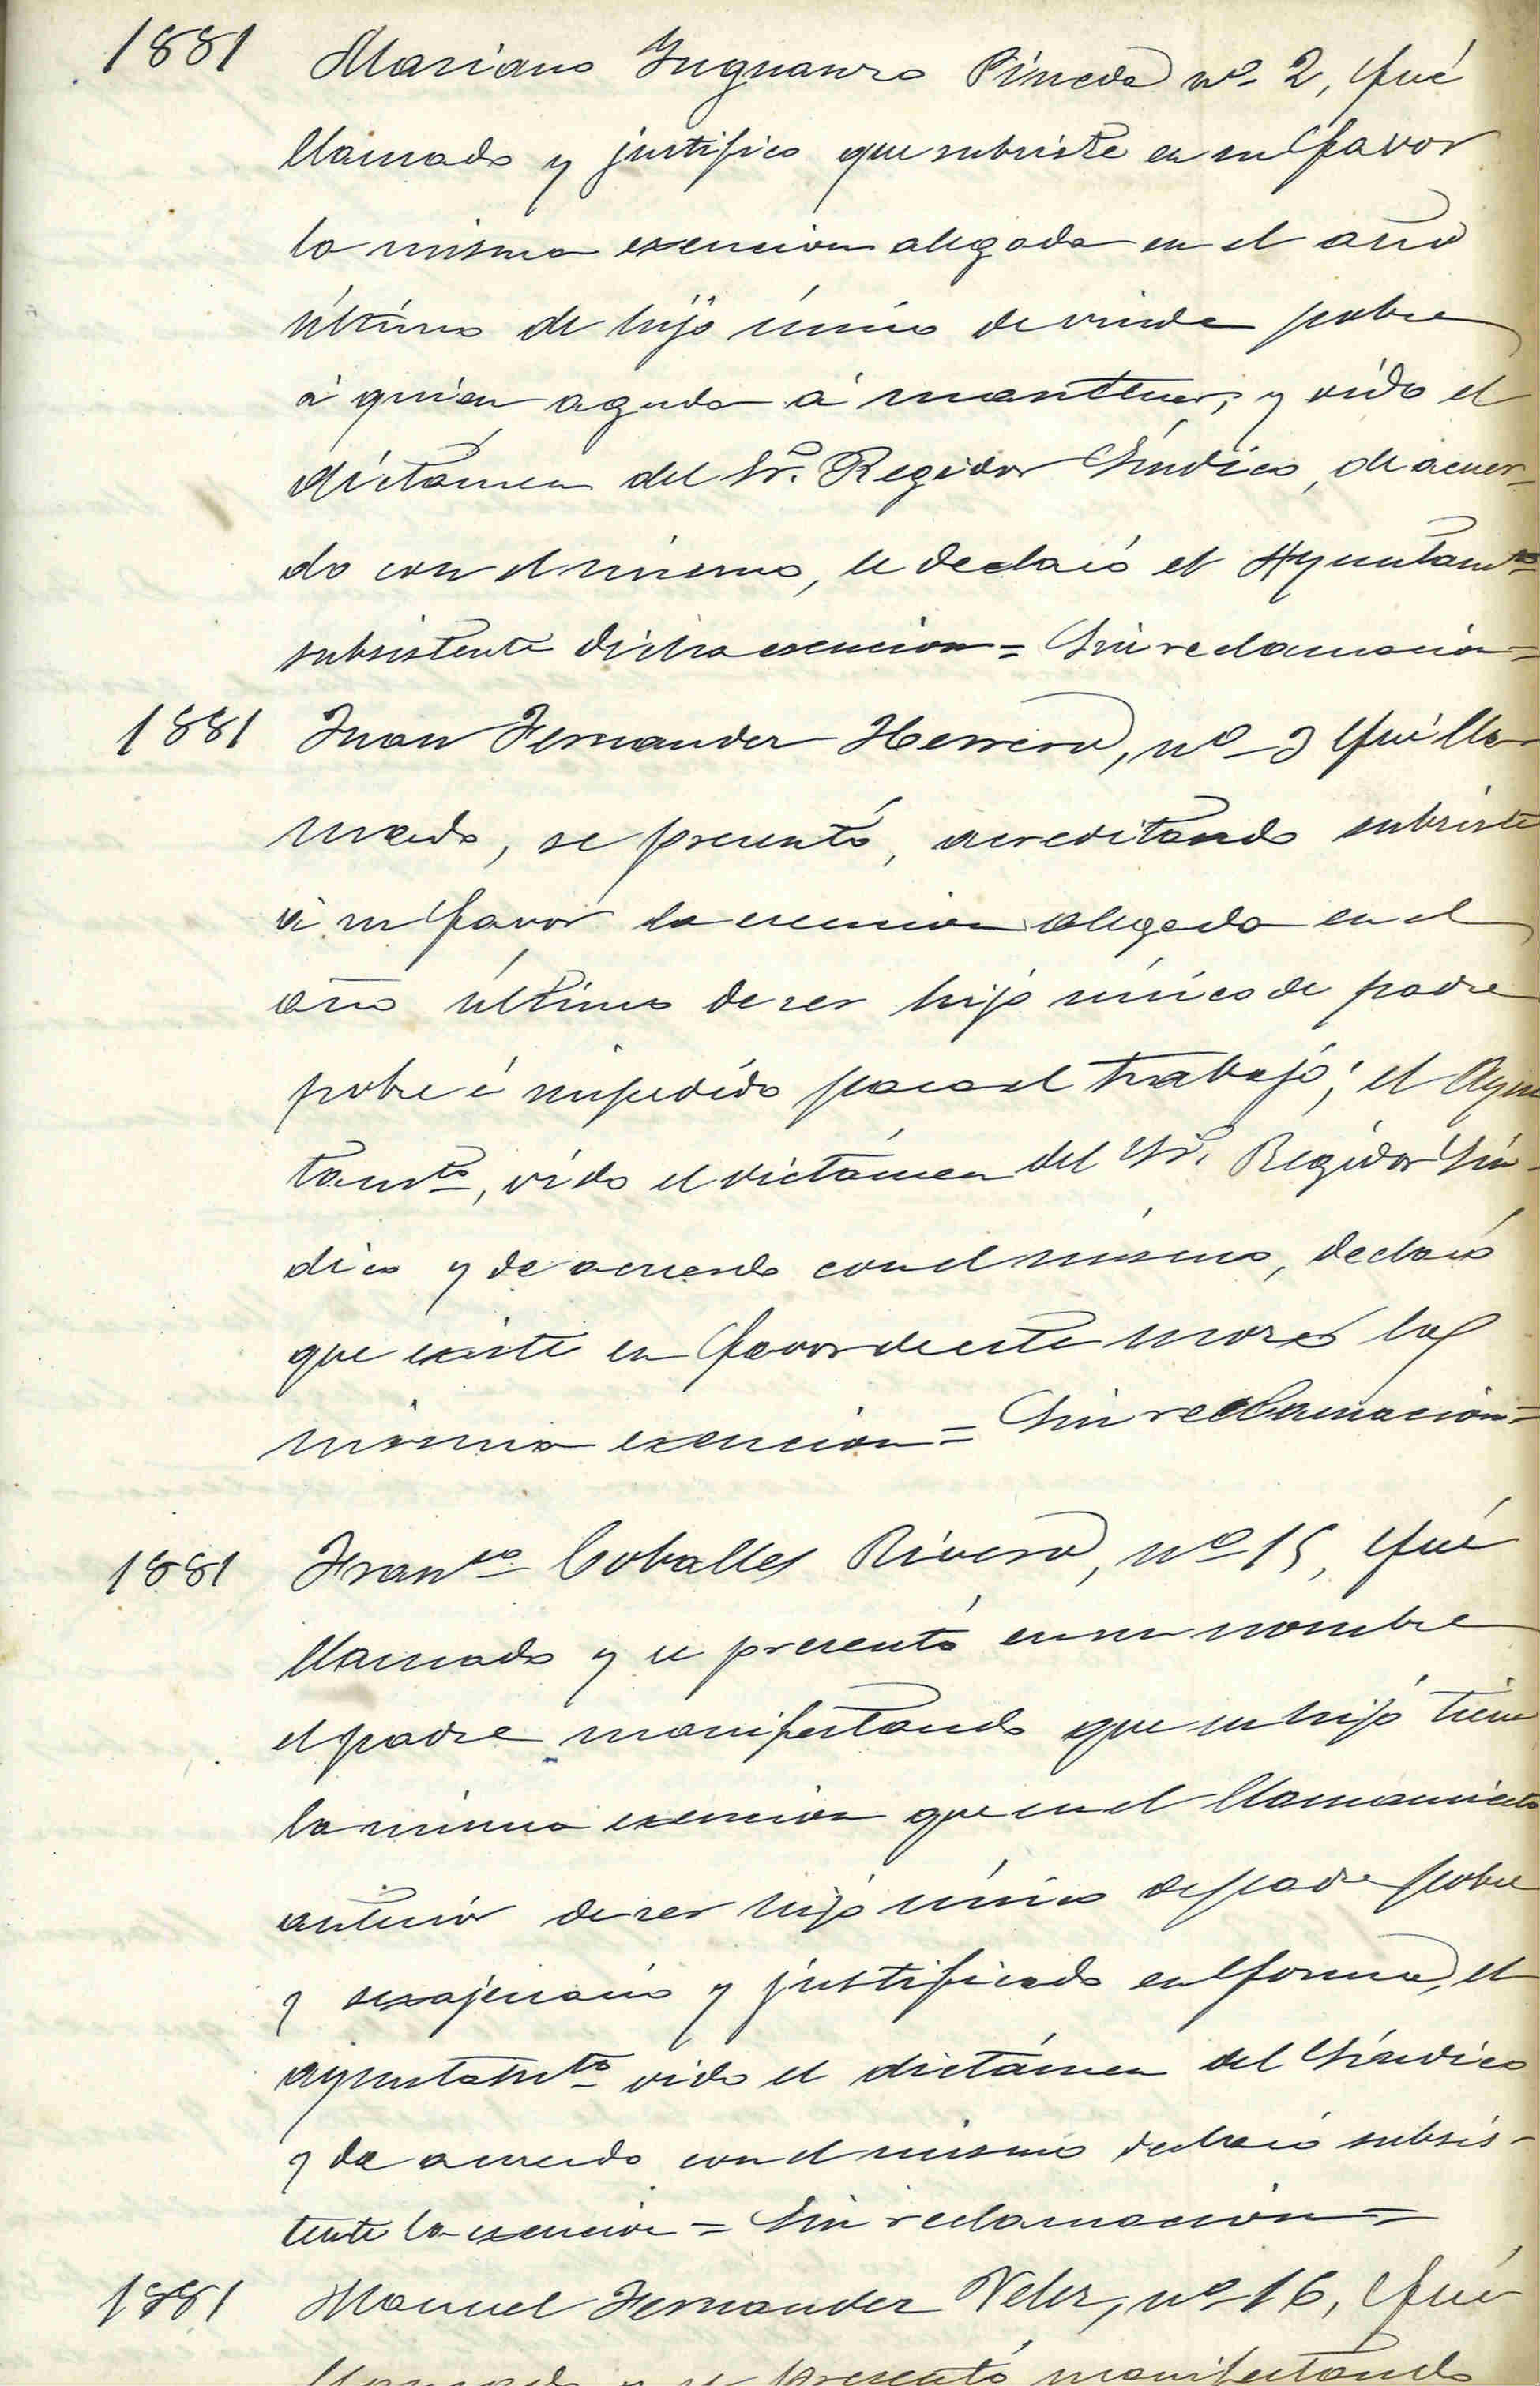 1881 Mariano Inguanzo Pineda nº 2, fué
llamado y justifico que subsiste en su favor
la misma exencion alegada en el año
último de hijo único de viuda pobre
á quien ayuda á mantener, y oido el
dictámen del Sr. Regidor Síndico, de acuer-
do con el mismo, le declaró el Ayuntamto
subsistente dicha exencion = Sin reclamacion =
1881 Juan Fernandez Herrero, nº 3 fué lla
mado, se presentó, acreditando subsiste
á su favor la exencion alegada en el
año último de ser hijo único de padre
pobre é impedido para el trabajo; el Ayun
tamto, oido el dictámen del Sr. Regidor Sín-
dico y de acuerdo con el mismo, declaró
que existe en favor de este mozo la
misma exencion = Sin reclamacion =
1881 Franco Coballes Rivero, nº 15, fué
llamado y se presentó en su nombre
el padre manifestando que su hijo tiene
la misma exencion que en el llamamiento
anterior de ser hijo único de padre pobre
y sexajenario y justificado en forma, el
ayuntamto oido el dictámen del Síndico
y de acuerdo con el mismo declaró subsis-
tente la exencion = Sin reclamacion =
1881 Manuel Fernandez Velez, nº 16, fué
llamado y se presentó manifestando